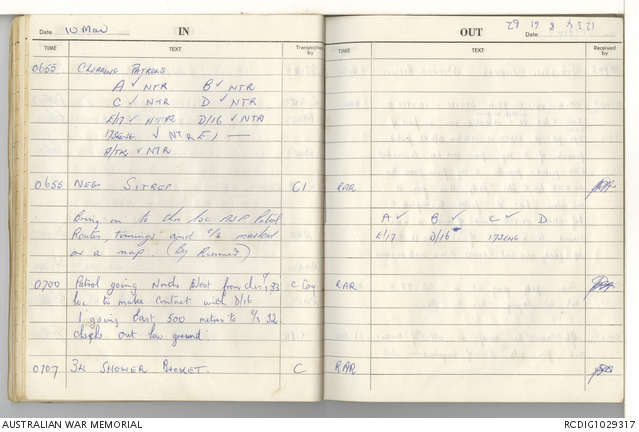 Date 10 Mar IN
TIME TEXT Transmitted by
0655 CLEARING PATROLS
A ✓ NTR B ✓ NTR
C ✓ NTR D ✓ NTR
E/17 ✓ NTR D/16 ✓ NTR
17SENG ✓ NTR E1 —
A/TK ✓ NTR
0655 NEG SITREP C1
Bring in to this loc ALP Patrol
Routes, timings and marked
on a map. (By Runner)
0700 Patrol going North West from this 33 C Coy
loc to make contact with D/16
1 going East 500 metres to 32
check out low ground.
0707 3x SHOWER BUCKET. C
OUT Date
TEXT Received by
RAR
A ✓ B ✓ C ✓ D
E/17 D/16 17SENG
RAR
RAR
AUSTRALIAN WAR MEMORIAL RCDIG1029317